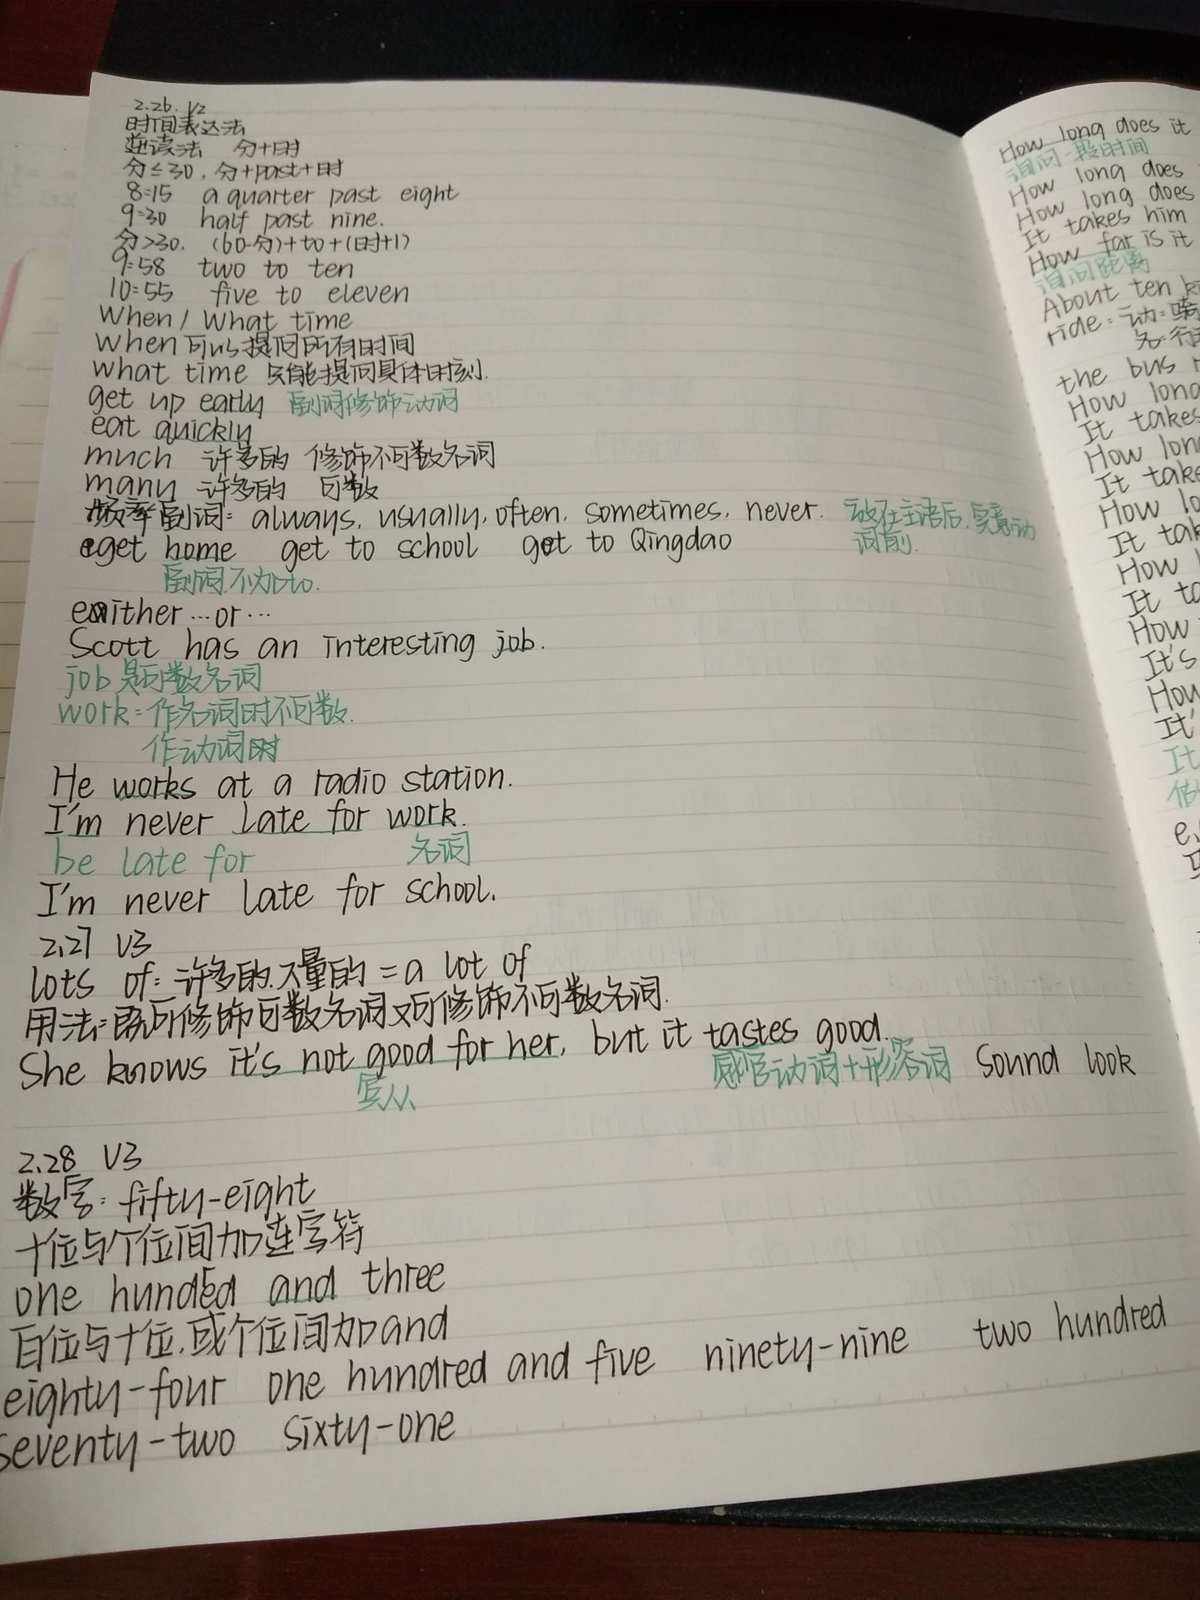 2.26. V2
时间表达法
逆读法 分+时
分≤30, 分+past+时
8:15 a quarter past eight
9:30 half past nine.
分>30. (60-分)+to+(时+1)
9:58 two to ten
10:55 five to eleven
When / What time
When可以提问所有时间
what time 只能提问具体时刻.
get up early 副词修饰动词
eat quickly
much 许多的 修饰不可数名词
many 许多的 可数
频率副词: always, usually, often, sometimes, never. 放在主语后, 实意动
词前.
get home get to school get to Qingdao
副词.不加to.
either ... or ...
Scott has an interesting job.
job 是可数名词
work: 作名词时不可数.
作动词时
He works at a radio station.
I'm never late for work.
be late for 名词
I'm never late for school.
2.27 V3
lots of: 许多的.大量的 = a lot of
用法: 既可修饰可数名词又可修饰不可数名词.
She knows it's not good for her, but it tastes good.
宾从 感官动词+形容词 sound look
2.28 V3
数字: fifty-eight
十位与个位间加连字符
one hunded and three
百位与十位.或个位间加and
eighty-four one hundred and five ninety-nine two hundred
seventy-two sixty-one
How long does it
询问一段时间
How long does
How long does
It takes him
How far is it
询问距离
About ten
ride: 动:骑
名:行
the bus
How long
It takes
How long
It take
How long
It tak
How l
It ta
How
It's
How
It'
It
e.